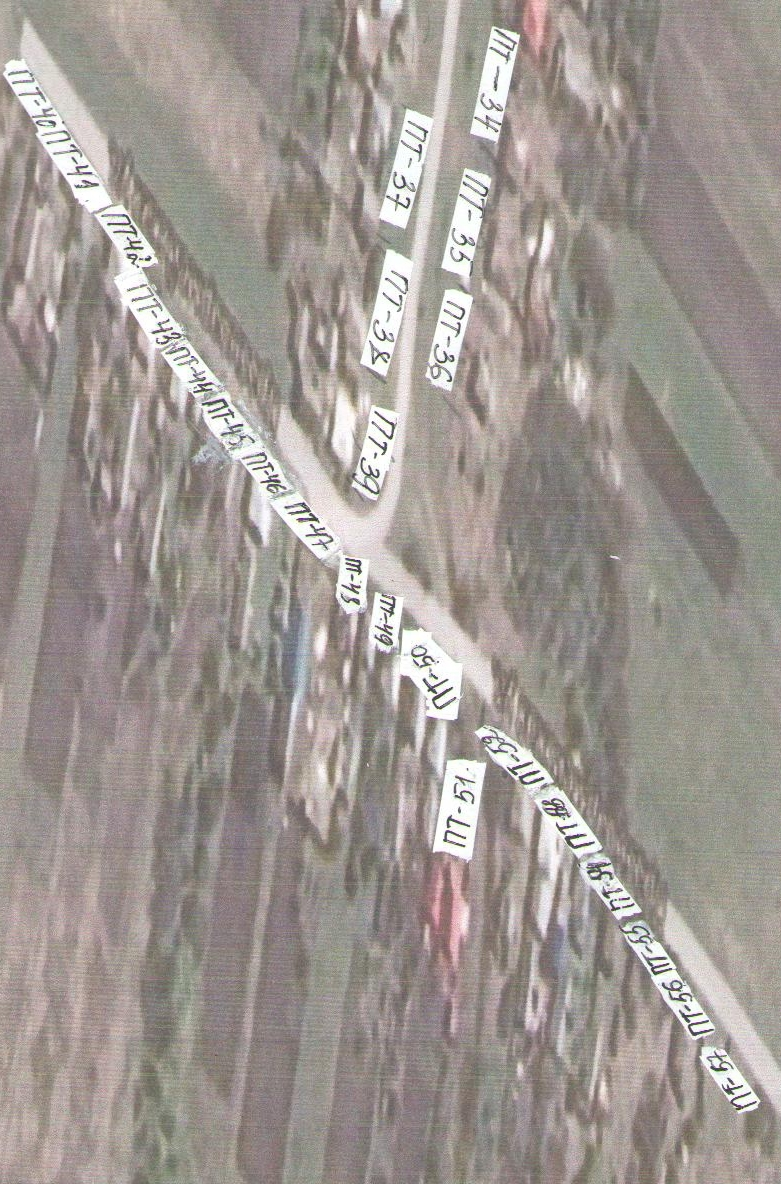 ПТ-34
ПТ-37
ПТ-35
ПТ-38
ПТ-36
ПТ-39
ПТ-40
ПТ-41
ПТ-42
ПТ-43
ПТ-44
ПТ-45
ПТ-46
ПТ-47
ПТ-48
ПТ-49
ПТ-50
ПТ-51
ПТ-52
ПТ-54
ПТ-55
ПТ-56
ПТ-57